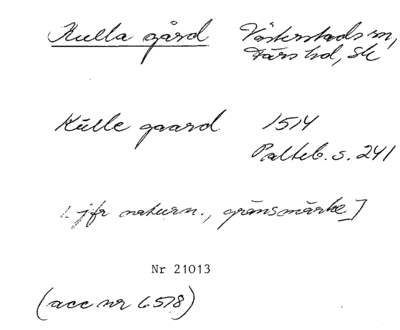 Kulla gård Västerstads sn,
Färs hd, Sk
Kulle gaard 1514
Palteb. s. 241
[jfr naturn., gränsmärke]
Nr 21013
(acc nr 6578)